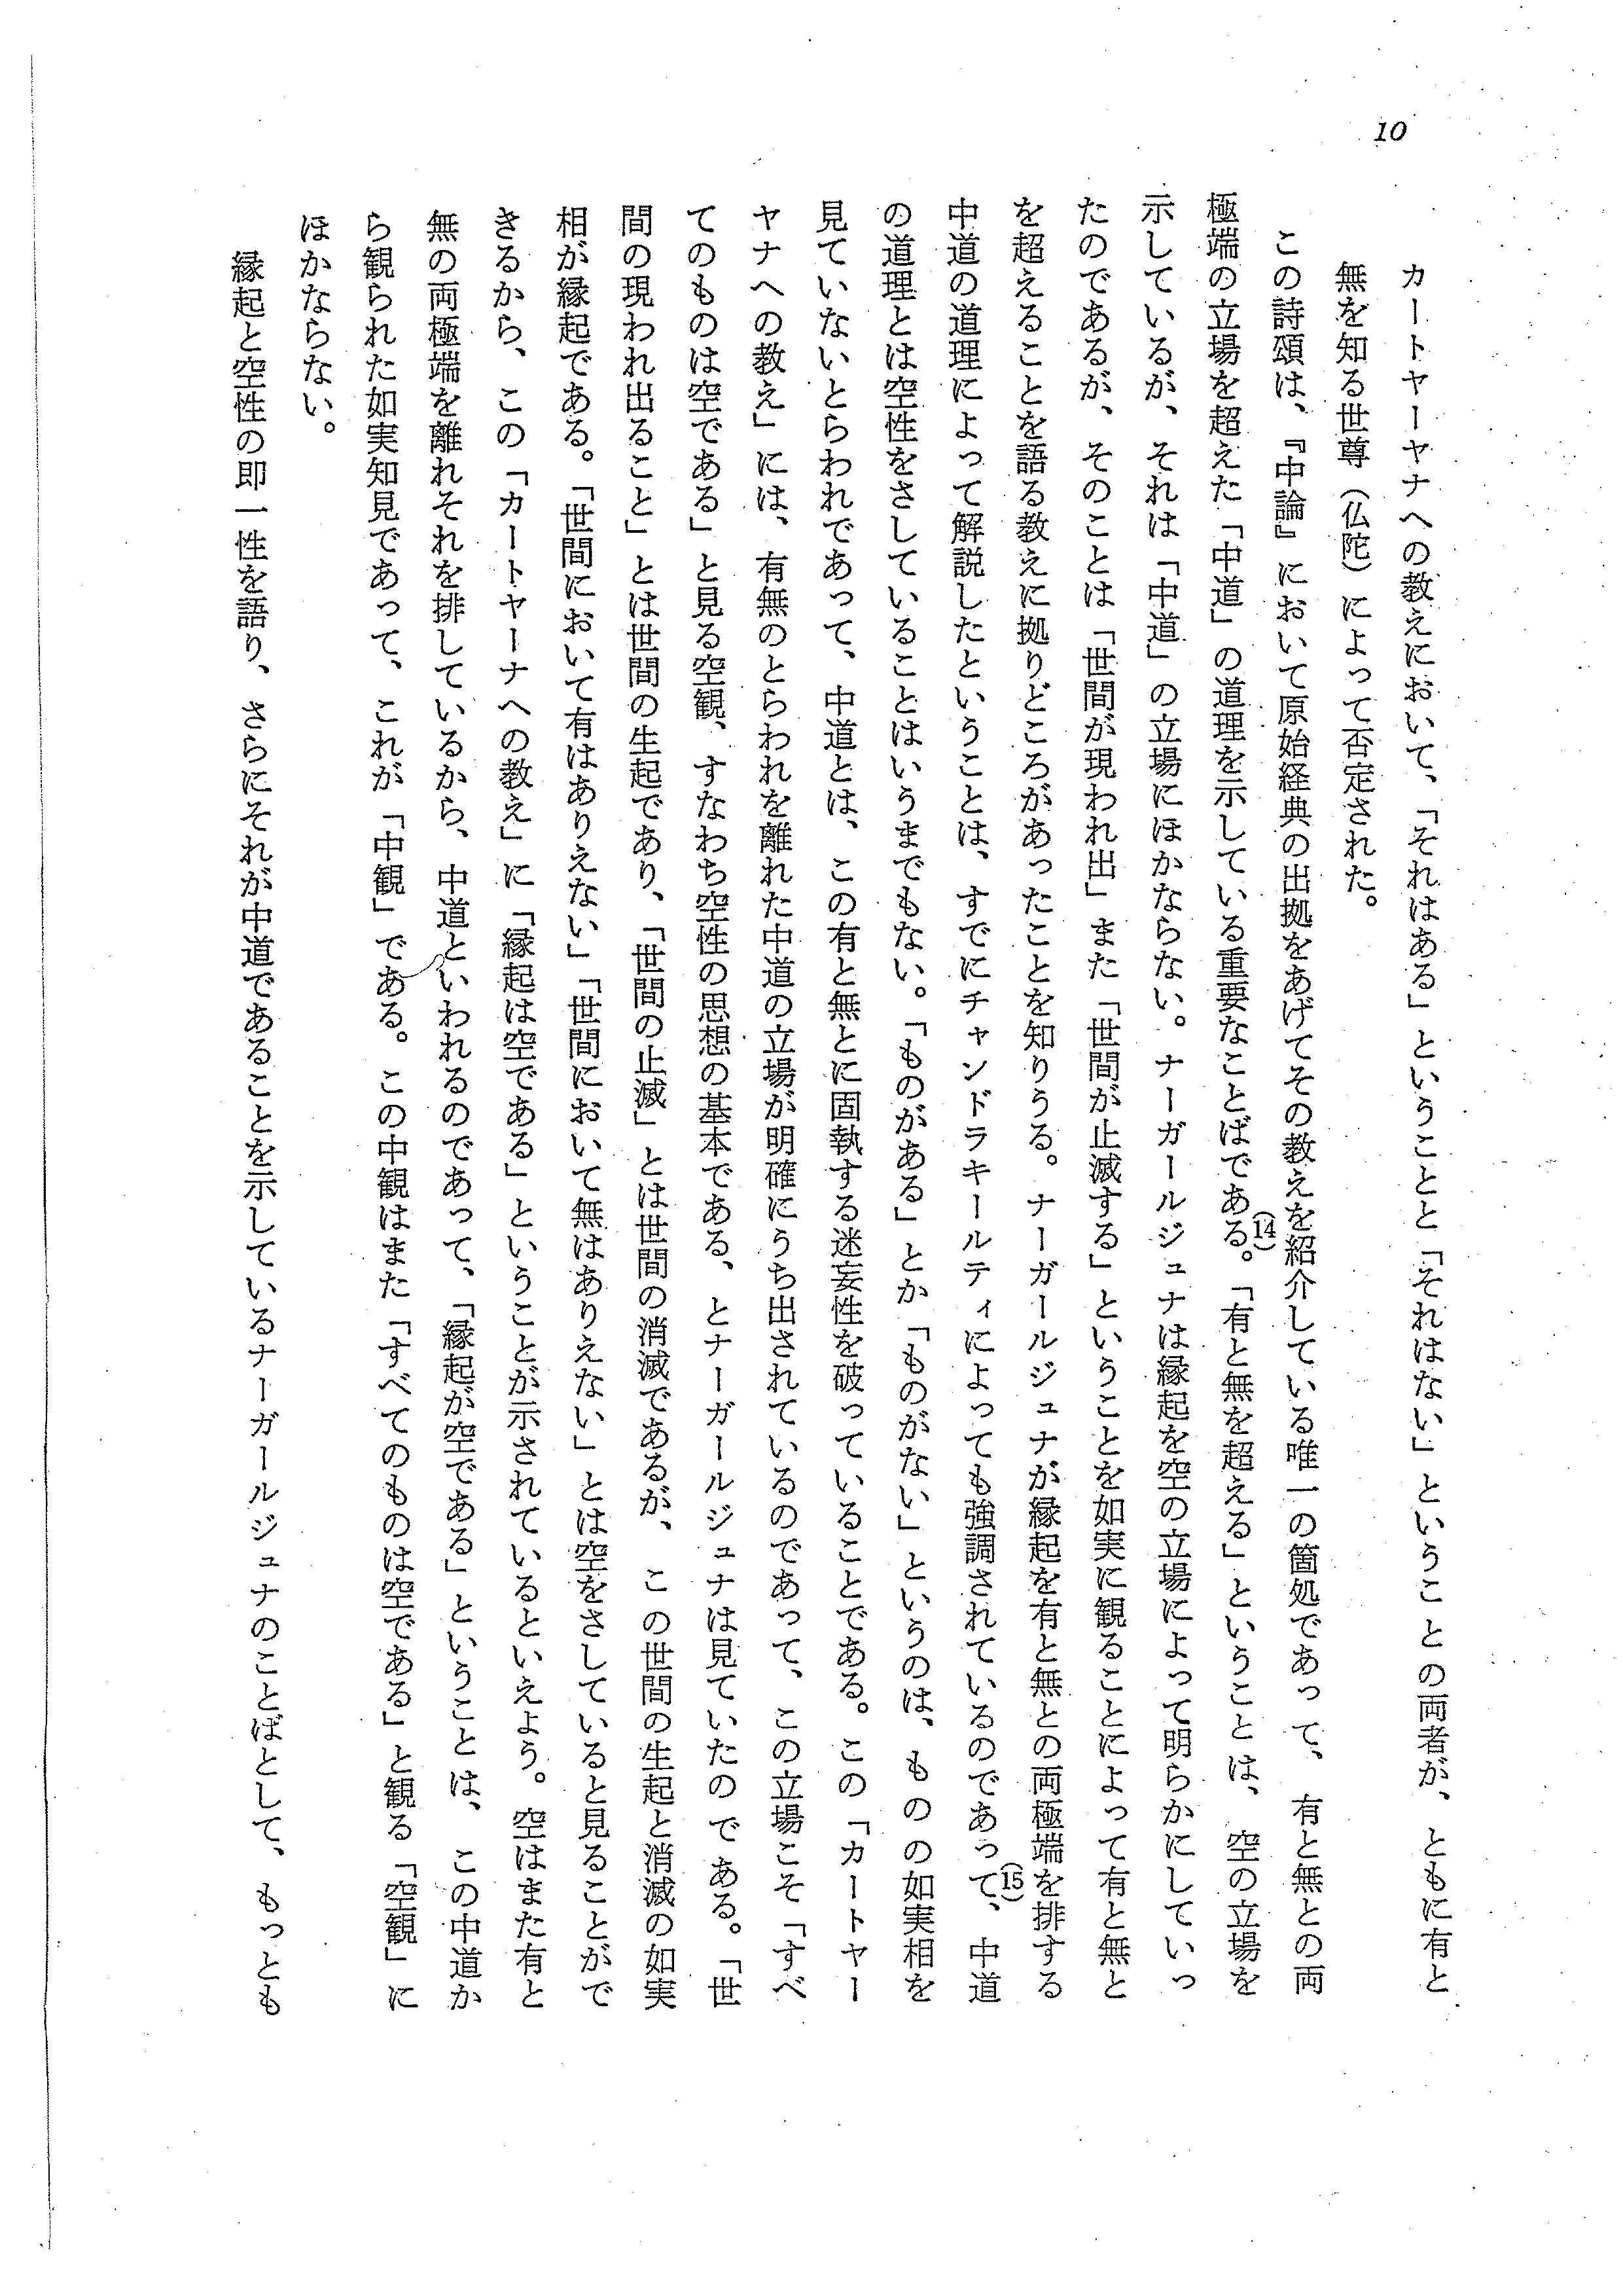 10
カートヤーヤナへの教えにおいて、「それはある」ということと「それはない」ということの両者が、ともに有と
無を知る世尊(仏陀)によって否定された。
この詩頌は、『中論』において原始経典の出拠をあげてその教えを紹介している唯一の箇処であって、有と無との両
極端の立場を超えた「中道」の道理を示している重要なことばである。(14)「有と無を超える」ということは、空の立場を
示しているが、それは「中道」の立場にほかならない。ナーガールジュナは縁起を空の立場によって明らかにしていっ
たのであるが、そのことは「世間が現われ出」また「世間が止滅する」ということを如実に観ることによって有と無と
を超えることを語る教えに拠りどころがあったことを知りうる。ナーガールジュナが縁起を有と無との両極端を排する
中道の道理によって解説したということは、すでにチャンドラキールティによっても強調されているのであって、(15)中道
の道理とは空性をさしていることはいうまでもない。「ものがある」とか「ものがない」というのは、ものの如実相を
見ていないとらわれであって、中道とは、この有と無とに固執する迷妄性を破っていることである。この「カートヤー
ヤナへの教え」には、有無のとらわれを離れた中道の立場が明確にうち出されているのであって、この立場こそ「すべ
てのものは空である」と見る空観、すなわち空性の思想の基本である、とナーガールジュナは見ていたのである。「世
間の現われ出ること」とは世間の生起であり、「世間の止滅」とは世間の消滅であるが、この世間の生起と消滅の如実
相が縁起である。「世間において有はありえない」「世間において無はありえない」とは空をさしていると見ることがで
きるから、この「カートヤーナへの教え」に「縁起は空である」ということが示されているといえよう。空はまた有と
無の両極端を離れそれを排しているから、中道といわれるのであって、「縁起が空である」ということは、この中道か
ら観られた如実知見であって、これが「中観」である。この中観はまた「すべてのものは空である」と観る「空観」に
ほかならない。
縁起と空性の即一性を語り、さらにそれが中道であることを示しているナーガールジュナのことばとして、もっとも